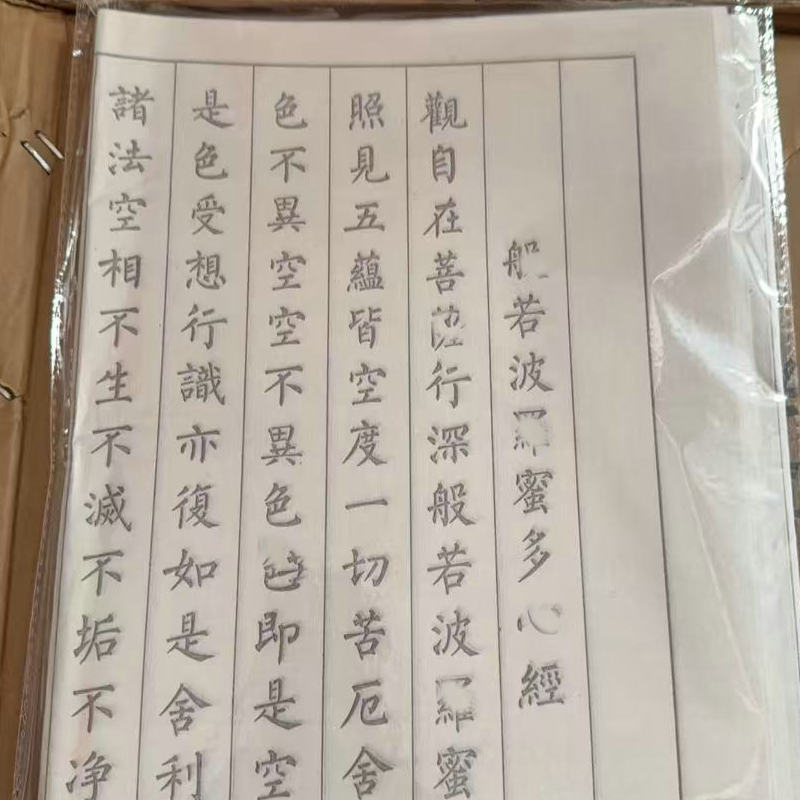 般若波羅蜜多心經
觀自在菩薩行深般若波羅蜜
照見五蘊皆空度一切苦厄舍
色不異空空不異色色即是空
是色受想行識亦復如是舍利
諸法空相不生不滅不垢不净